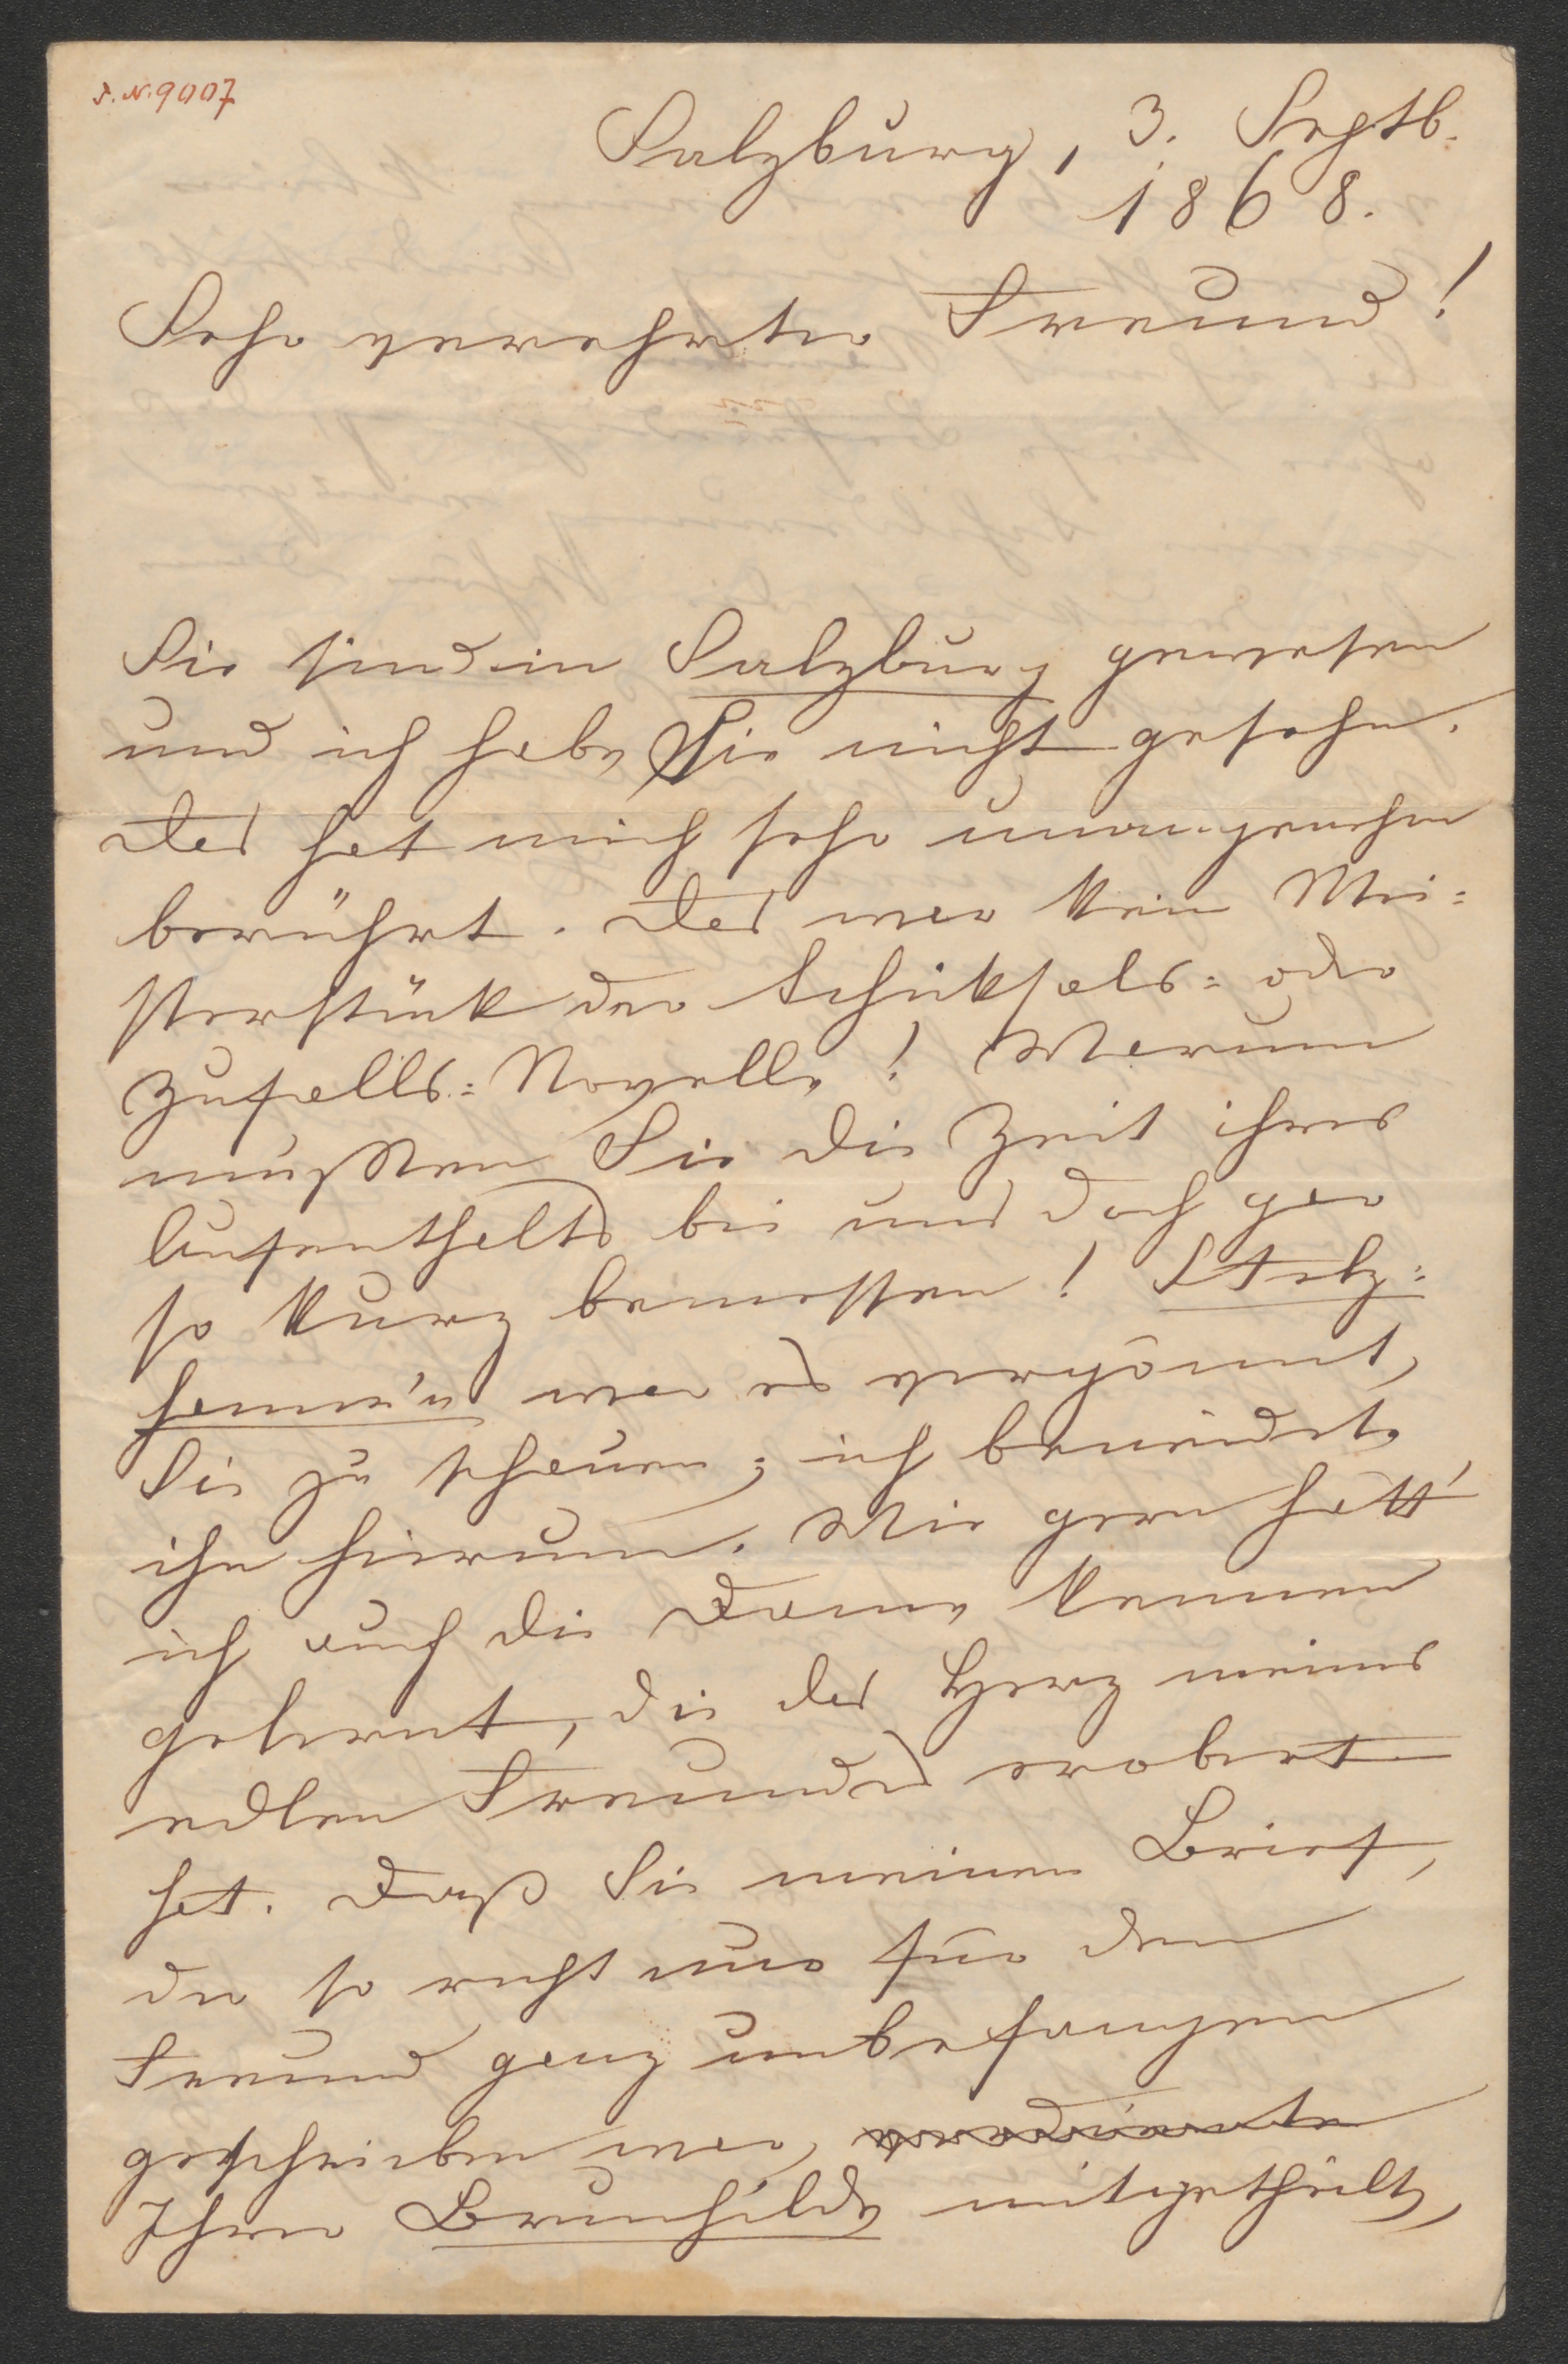 I. N. 9007
Salzburg, 3. Septb.
1868.
Sehr verehrter Freund!
Sie sind in Salzburg gewesen
und ich habe Sie nicht gesehn.
Das hat mich sehr unangenehm
berührt. Das war kein Mei=
sterstück der Schicksals= oder
Zufalls=Novelle! Warum
mußten Sie die Zeit ihres
Aufenthalts bei uns doch gar
so kurz bemessen! Stelz=
hamer'n war es vergönnt,
Sie zu schauen; ich beneidete
ihn hierum. Wie gern hätt'
ich auch die Dame kennen
gelernt, die das Herz meines
edlen Freundes erobert
hat. Daß Sie meinen Brief,
der so recht nur für den
Freund ganz unbefangen
geschrieben war,
Ihrer Brunhilde mitgetheilt,